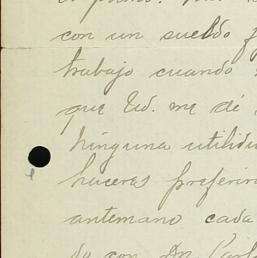 con un sueldo
trabajo cuando
que Ud. me dé
ninguna utilid
haceres preferir
antemano cada
do con Dn Carl